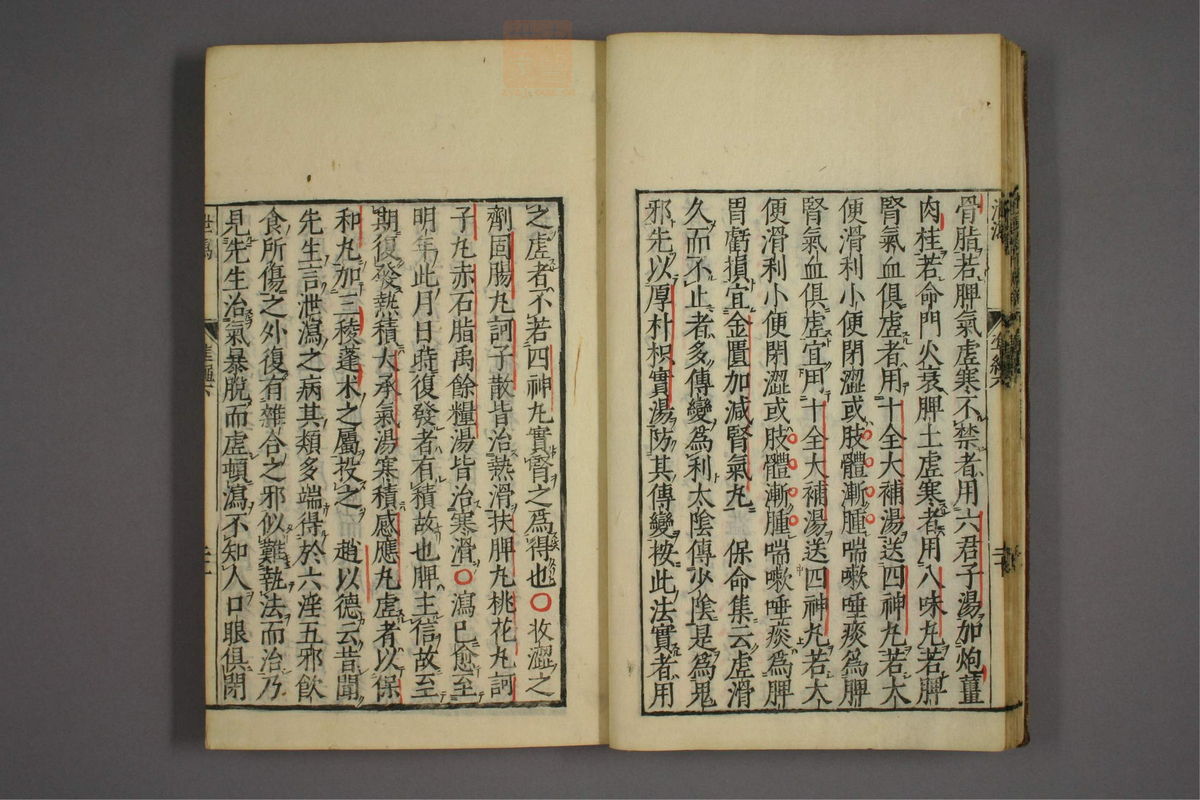 骨脂若脾氣虛寒不禁者用六君子湯加炮薑
肉桂若命門火衰脾土虛寒者用八味丸若脾
腎氣血俱虛者用十全大補湯送四神丸若大
便滑利小便閉澀或肢體漸腫喘嗽唾痰爲脾
腎氣血俱虛宜用十全大補湯送四神丸若大
便滑利小便閉澀或肢體漸腫喘嗽唾痰爲脾
胃虧損宜金匱加減腎氣丸 保命集云虛滑
久而不止者多傳變爲利太陰傳少陰是爲鬼
邪先以厚朴枳實湯防其傳變按此法實者用
之虛者不若四神丸實腎之爲得也○收澀之
劑固腸丸訶子散皆治熱滑扶脾丸桃花丸訶
子丸赤石脂禹餘糧湯皆治寒滑○瀉已愈至
明年此月日時復發者有積故也脾主信故至
期復發熱積大承氣湯寒積感應丸虛者以保
和丸加三稜蓬朮之屬投之 趙以德云昔聞
先生言泄瀉之病其類多端得於六淫五邪飲
食所傷之外復有雜合之邪似難執法而治乃
見先生治氣暴脫而虛頓瀉不知人口眼俱閉